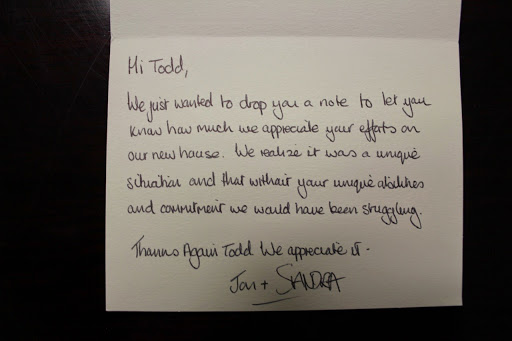 Hi Todd,
We just wanted to drop you a note to let you
know how much we appreciate your efforts on
our new house. We realize it was a unique
situation and that without your unique abilities
and commitment we would have been struggling.
Thanks Again Todd We appreciate it -
Jon + SANDRA